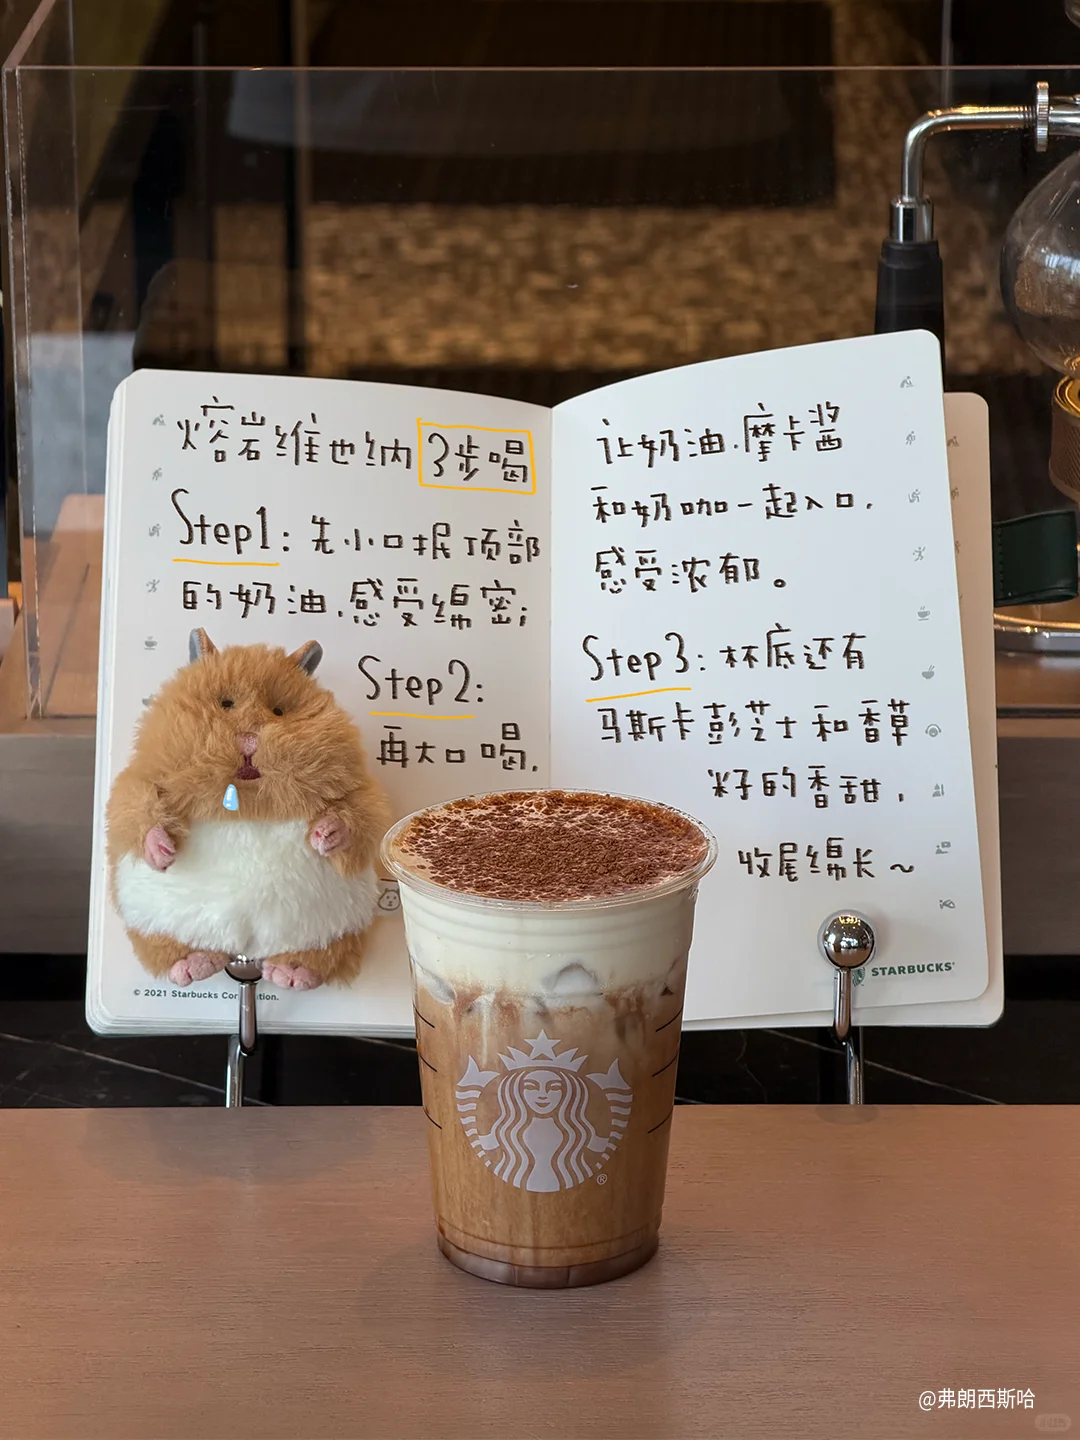 熔岩维也纳 3步喝
Step1：先小口抿顶部
的奶油，感受绵密；
Step2：
再大口喝，
让奶油、摩卡酱
和奶咖一起入口，
感受浓郁。
Step3：杯底还有
马斯卡彭芝士和香草
籽的香甜，
收尾绵长～
© 2021 Starbucks
STARBUCKS
@弗朗西斯哈